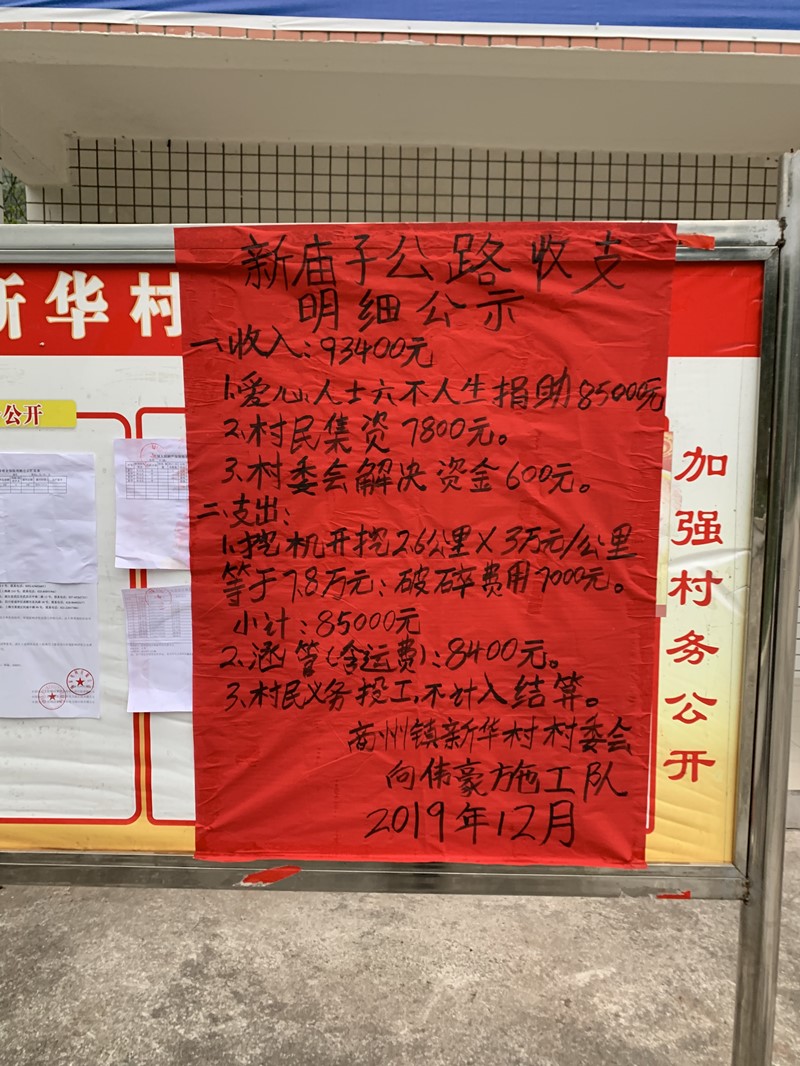 新庙子公路收支
明细公示
一、收入：93400元
1.爱心人士六不人生捐助85000元
2.村民集资7800元。
3.村委会解决资金600元。
二、支出：
1.挖机开挖2.6公里×3万元/公里
等于7.8万元；破碎费用7000元。
小计：85000元
2.涵管(含运费)：8400元。
3.村民义务投工，不计入结算。
商州镇新华村村委会
向伟豪施工队
2019年12月
新华村
公开
加强村务公开